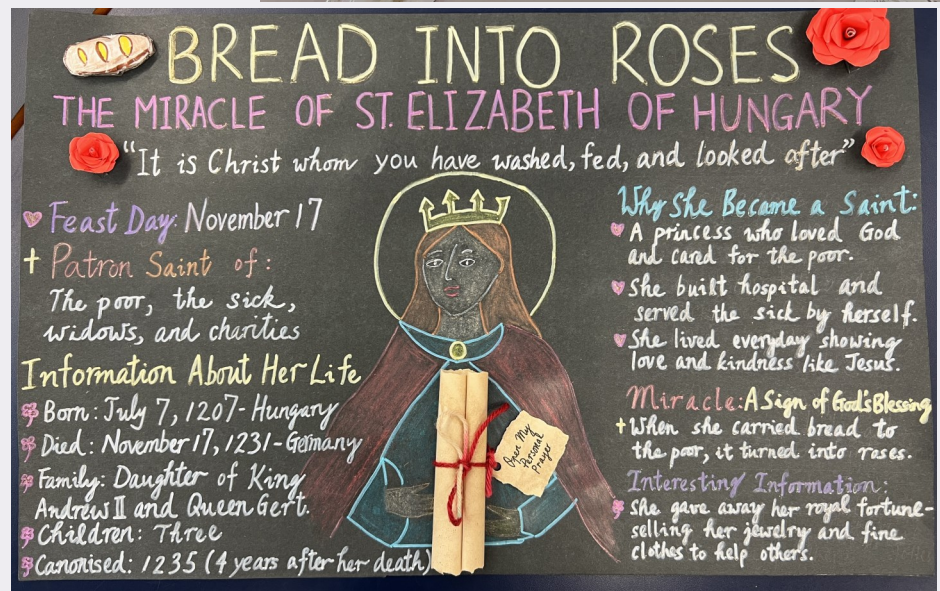 BREAD INTO ROSES
THE MIRACLE OF ST. ELIZABETH OF HUNGARY
"It is Christ whom you have washed, fed, and looked after"
Feast Day: November 17
Patron Saint of:
The poor, the sick,
widows, and charities
Information About Her Life
Born: July 7, 1207 - Hungary
Died: November 17, 1231 - Germany
Family: Daughter of King
Andrew II and Queen Gert.
Children: Three
Canonised: 1235 (4 years after her death)
Open My
Personal
Prayer
Why She Became a Saint:
A princess who loved God
and cared for the poor.
She built hospital and
served the sick by herself.
She lived everyday showing
love and kindness like Jesus.
Miracle: A Sign of God's Blessing
When she carried bread to
the poor, it turned into roses.
Interesting Information:
She gave away her royal fortune-
selling her jewelry and fine
clothes to help others.